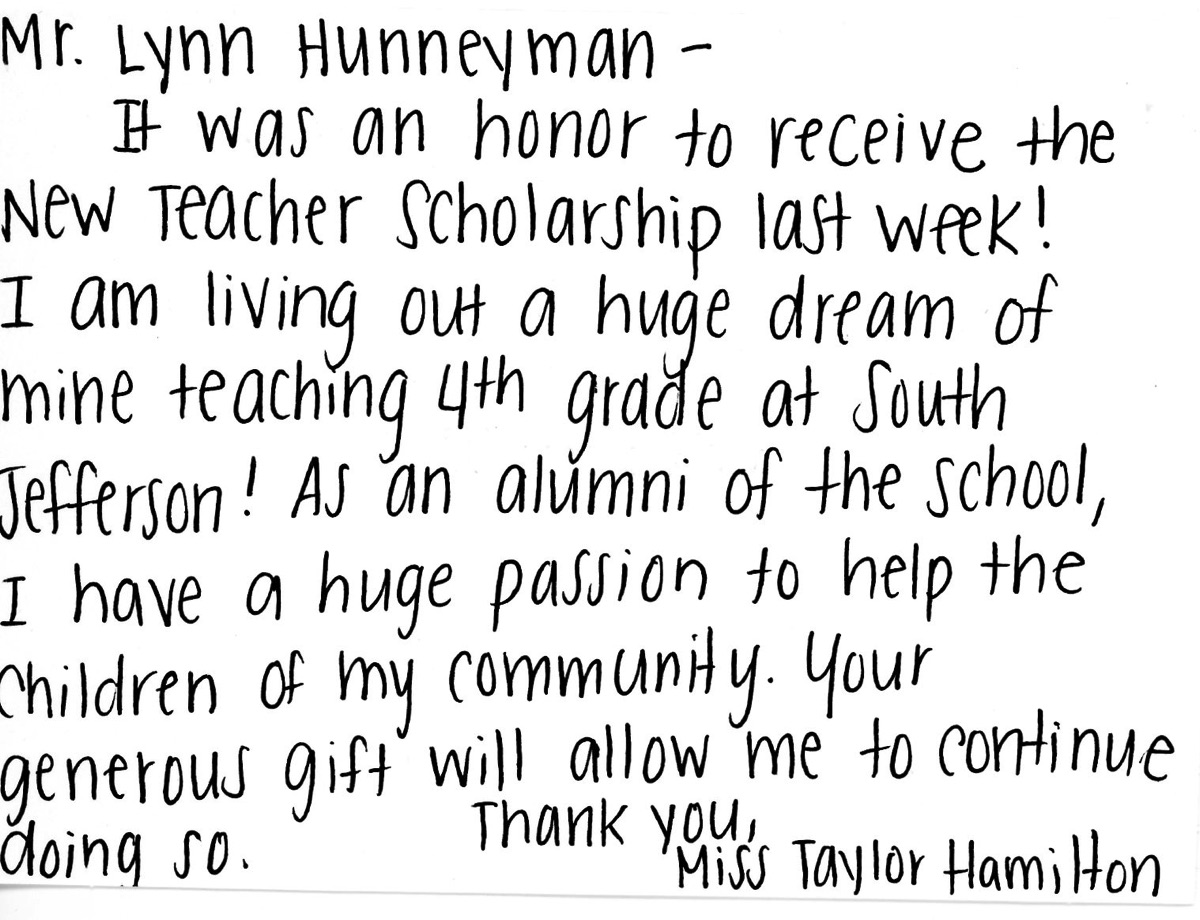 Mr. Lynn Hunneyman -
It was an honor to receive the
New Teacher Scholarship last week!
I am living out a huge dream of
mine teaching 4th grade at South
Jefferson! As an alumni of the school,
I have a huge passion to help the
children of my community. Your
generous gift will allow me to continue
doing so. Thank you,
Miss Taylor Hamilton